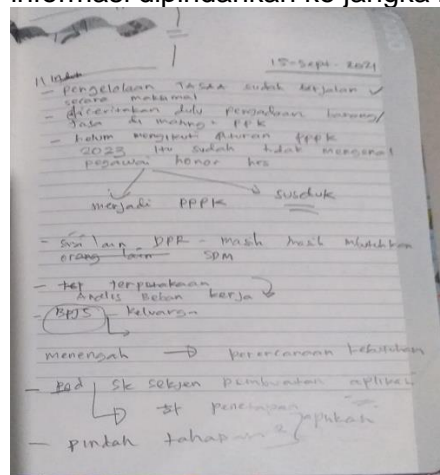 informasi dipindahkan ke jangka
15-Sept-2021
- pengelolaan TASAA sudah berjalan ✓
secara maksimal
- diceritakan dulu pengadaan barang/
Jasa di masing-2 PPK
- belum mengikuti aturan PPPK
2023 itu sudah tidak mengenal
pegawai honor
menjadi PPPK
- sisi lain DPR - masih
orang lain SDM
- terputakaan
Analis Beban kerja
- BPJS - Keluarga
menengah → perencanaan kebutuhan
- SK sekjen pembuatan aplikasi
↳ SK penetapan aplikasi
- pindah tahapan 2